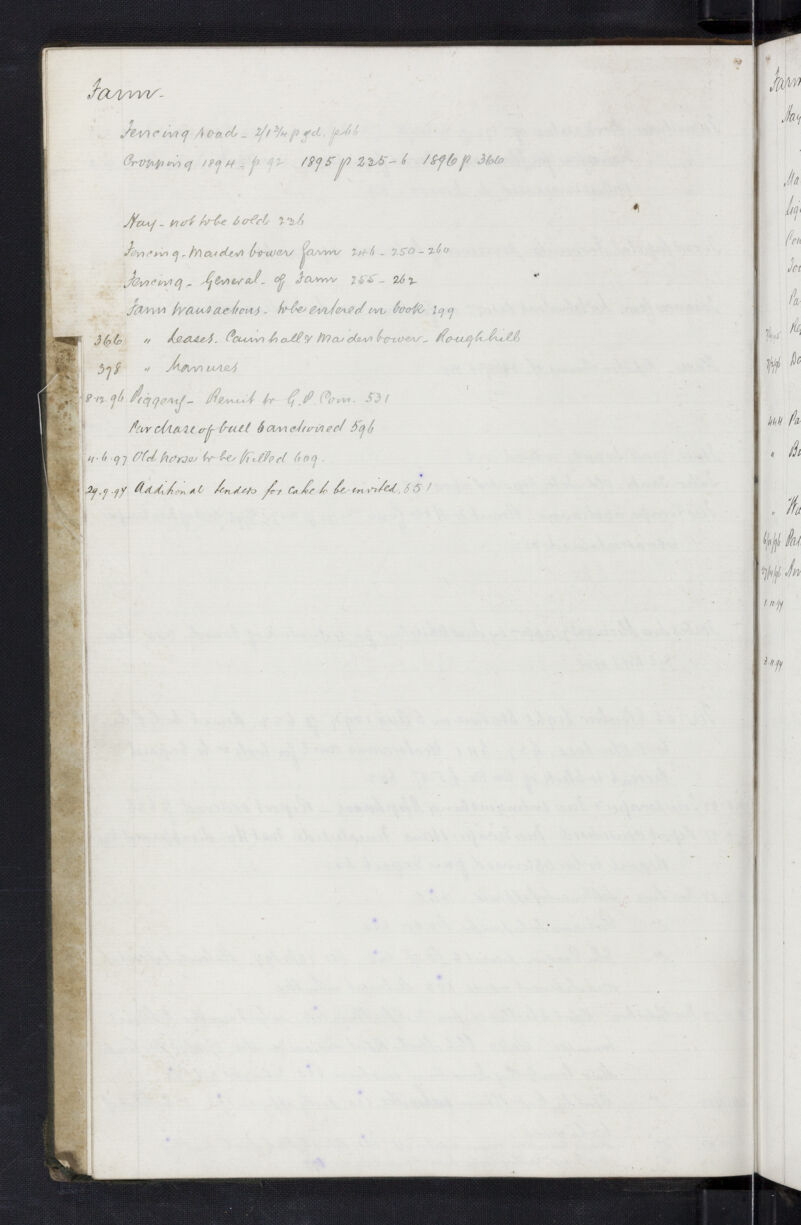 Farm.
Fencing road - 2/1 3/4 p yd. p 66
Cropping 1894 - p 92 1895 p 225-6 1896 p 366
Hay - not to be sold 236
Fencing - Maidenbower farm 246 - 250 - 260
Fencing - General - of Farm 255 - 262
Farm transactions - to be entered in book 299
366 " Leases. Cairnhall & Maidenbower - Roughhill
378 " Manures
8.12.96 Piggery - Remit to G.P. Com. 531
Purchase of bull sanctioned 596
11.6.97 Old horse to be killed 609.
29.9.97 Additional tenders for cake to be invited. 651
Farm